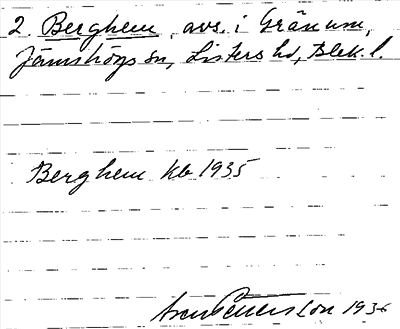 2. Berghem, avs. i Gränum,
Jämshögs sn, Listers hd, Blek. l.
Berghem kb 1935
1936